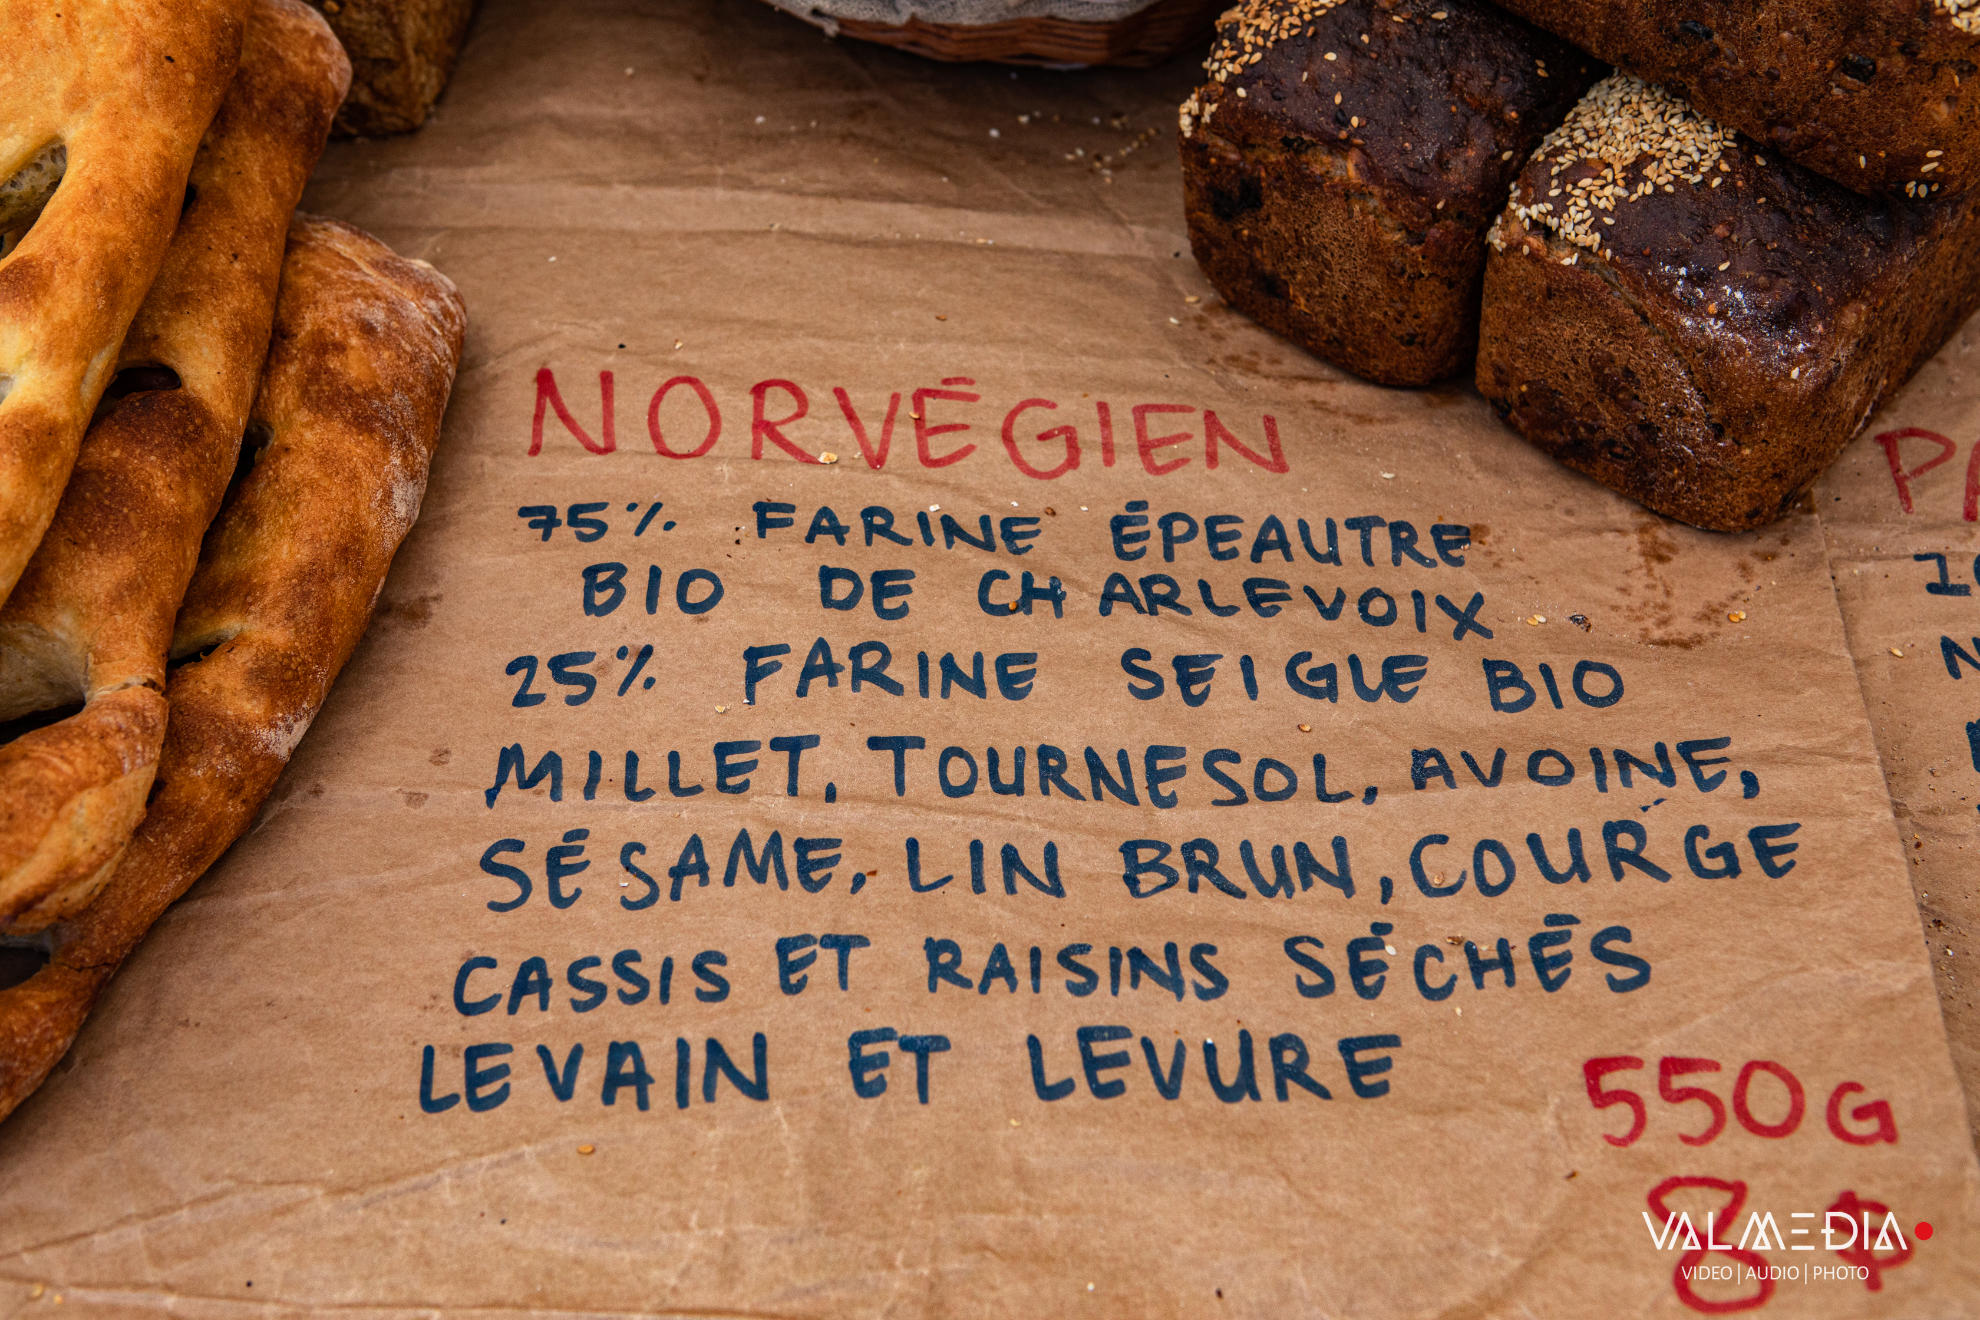 NORVÉGIEN
75% FARINE ÉPEAUTRE
BIO DE CHARLEVOIX
25% FARINE SEIGLE BIO
MILLET, TOURNESOL, AVOINE,
SÉSAME, LIN BRUN, COURGE
CASSIS ET RAISINS SÉCHÉS
LEVAIN ET LEVURE
550G
8$
VALMEDIA
VIDEO | AUDIO | PHOTO